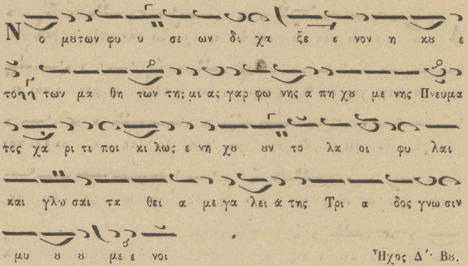 Ν ο μουτων φυ υ σε ων δι χα ξε ε νον η κου ε
το η η των μα θη των της μι ας γαρ φω νης α πη χου με νης Πνευμα
τος χα ρι τι ποι κι λως ε νη χου ουν το λα οι φυ λαι
και γλω σαι τα θει α με γα λει ά της Τρι α δος γνωσιν
μυ ου ου με ε νοι Ἦχος Δʹ· Βου.